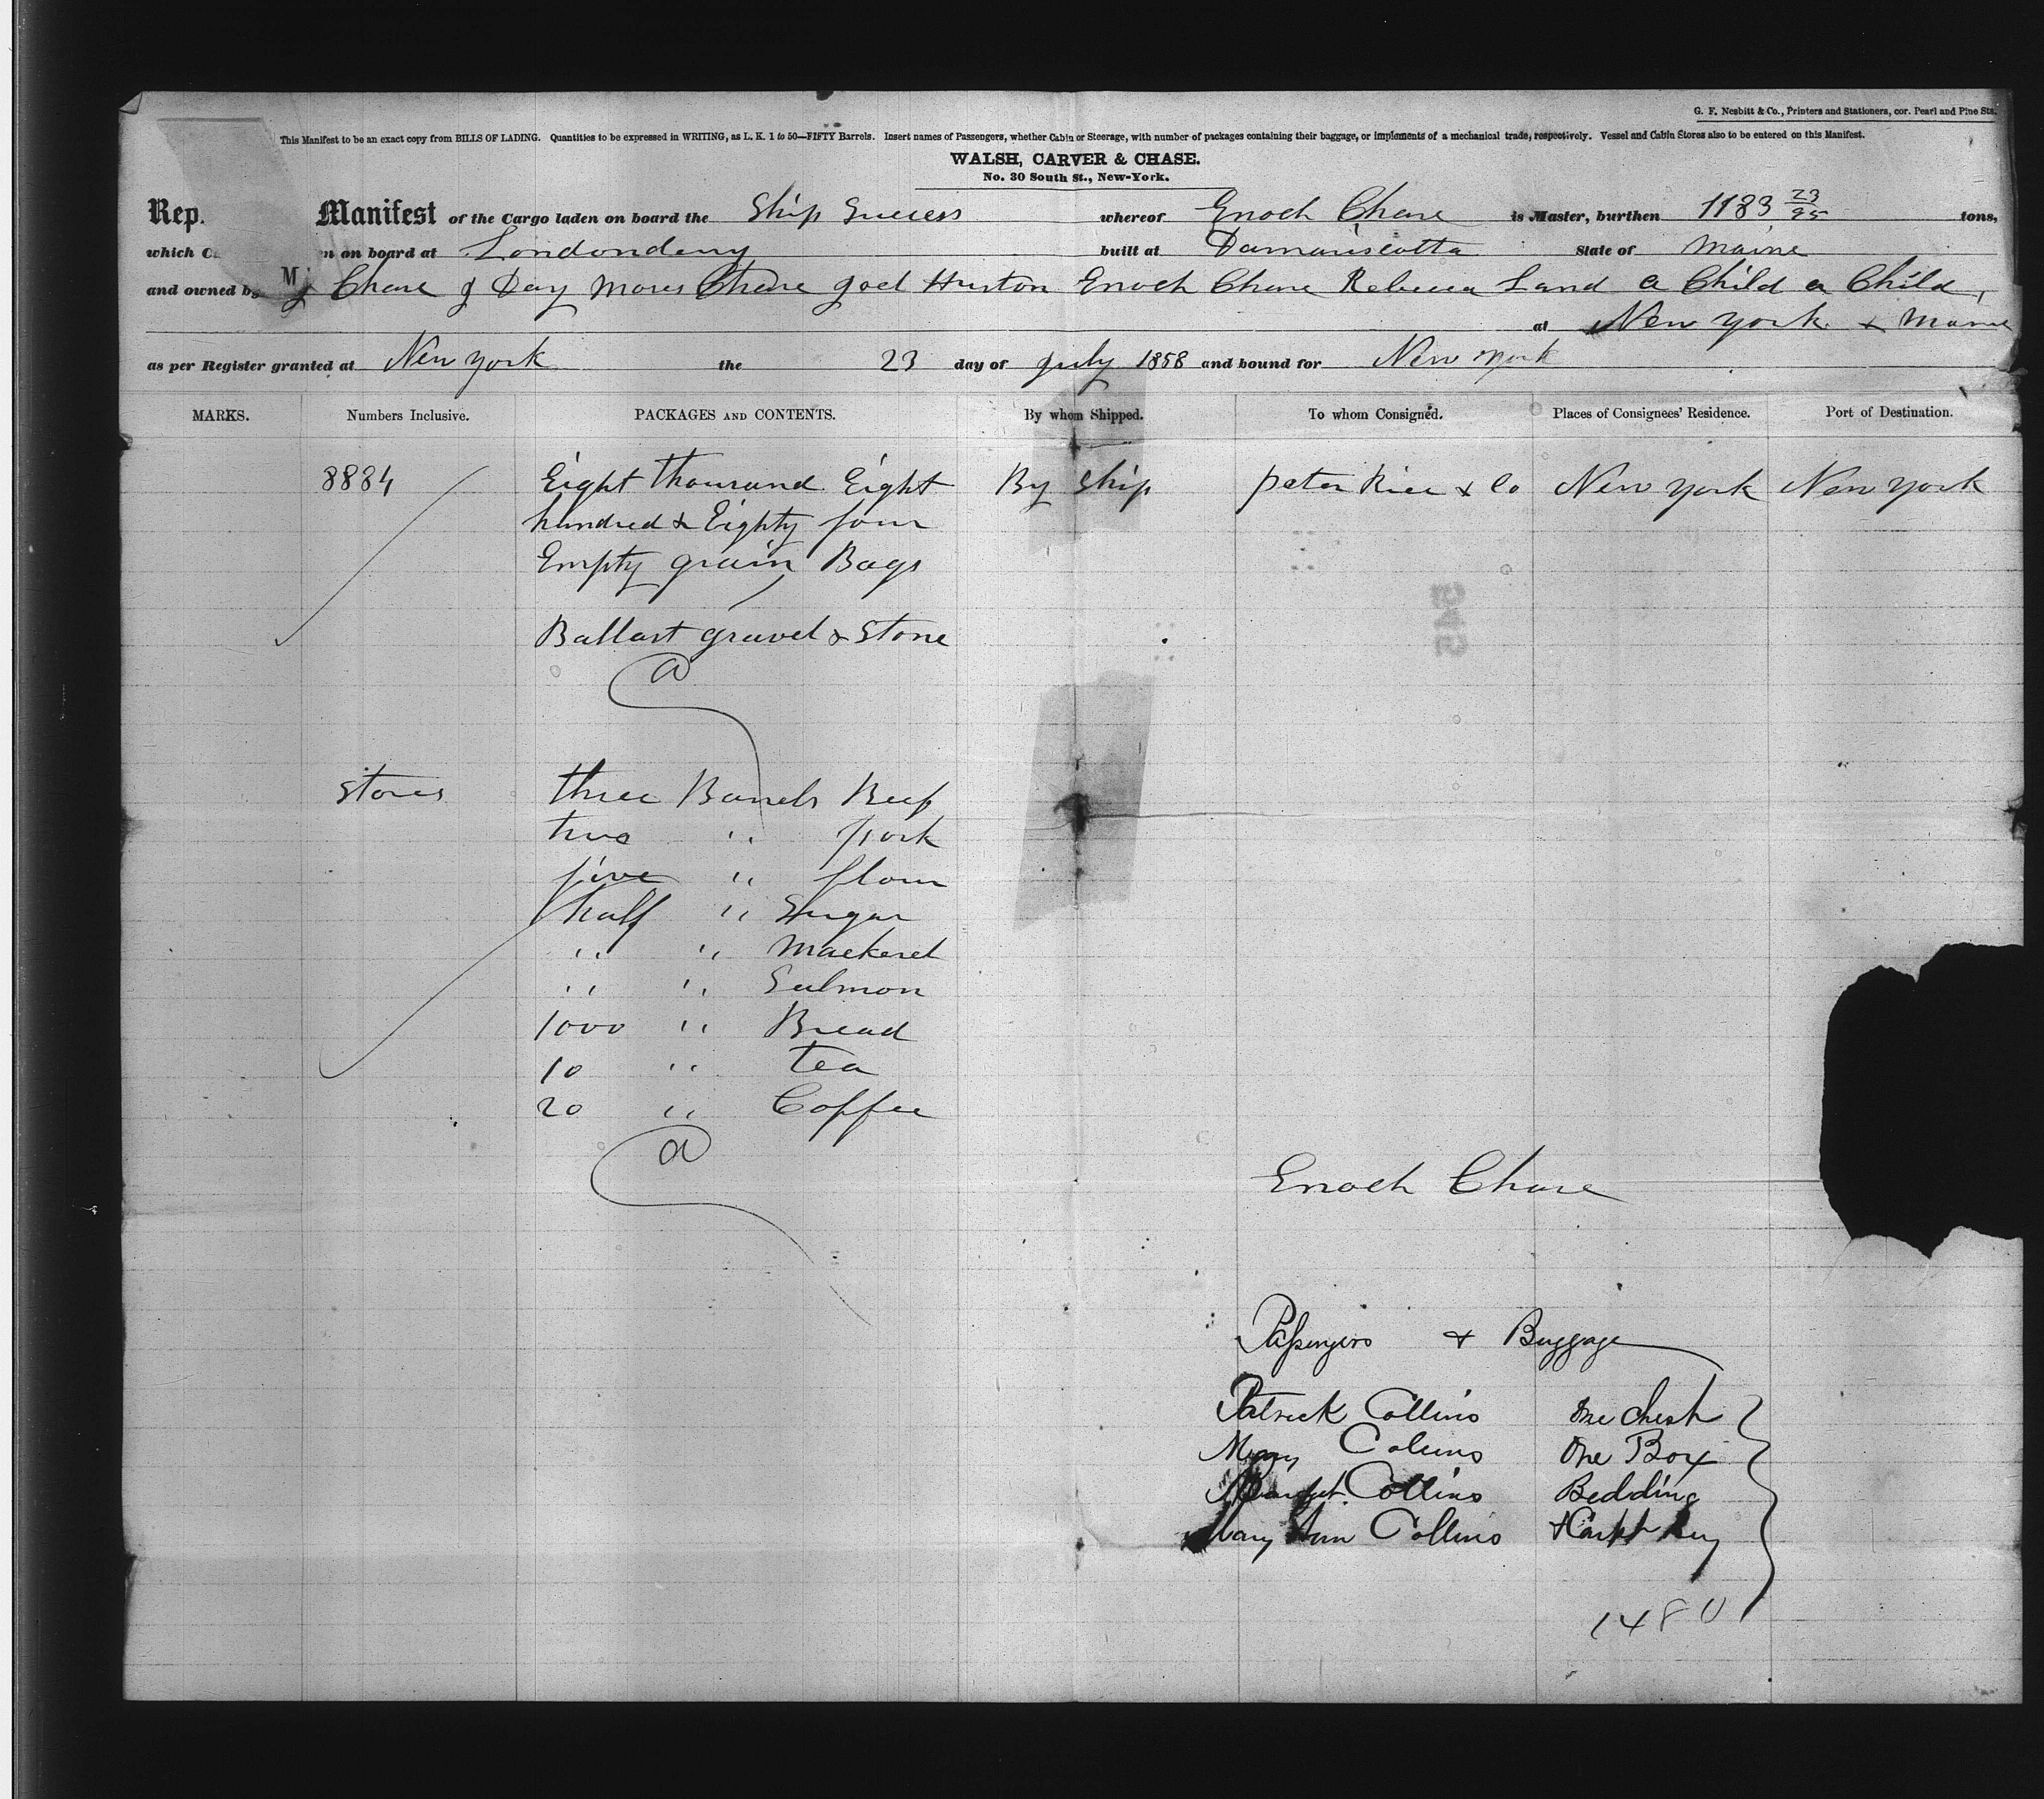 G. F. Nesbitt & Co., Printers and Stationers, cor. Pearl and Pine Sts.
This Manifest to be an exact copy from BILLS OF LADING. Quantities to be expressed in WRITING, as L. K. 1 to 50—FIFTY Barrels. Insert names of Passengers, whether Cabin or Steerage, with number of packages containing their baggage, or implements of a mechanical trade, respectively. Vessel and Cabin Stores also to be entered on this Manifest.
WALSH, CARVER & CHASE.
No. 30 South St., New-York.
Rep. Manifest of the Cargo laden on board the Ship Success whereof Enoch Chase is Master, burthen 1183 23/95 tons,
which on board at Londonderry built at Damariscotta State of Maine
and owned by Chase J Day Moses Chase Joel Huston Enoch Chase Rebecca Land a Child a Child,
at New York & Maine
as per Register granted at New York the 23 day of July 1858 and bound for New York
MARKS. Numbers Inclusive. PACKAGES AND CONTENTS. By whom Shipped. To whom Consigned. Places of Consignees' Residence. Port of Destination.
8884 Eight thousand Eight By Ship peter Rice & Co New York New York
hundred & Eighty four
Empty grain Bags
Ballast gravel & Stone
Stores three Barrels Beef
two " pork
five " flour
half " Sugar
" " Mackerel
" " Salmon
1000 " Bread
10 " tea
20 " Coffee
Enoch Chase
Passengers & Baggage
Patrick Collins One Chest
Mary Collins One Box
Collins Bedding
Mary Ann Collins
1480